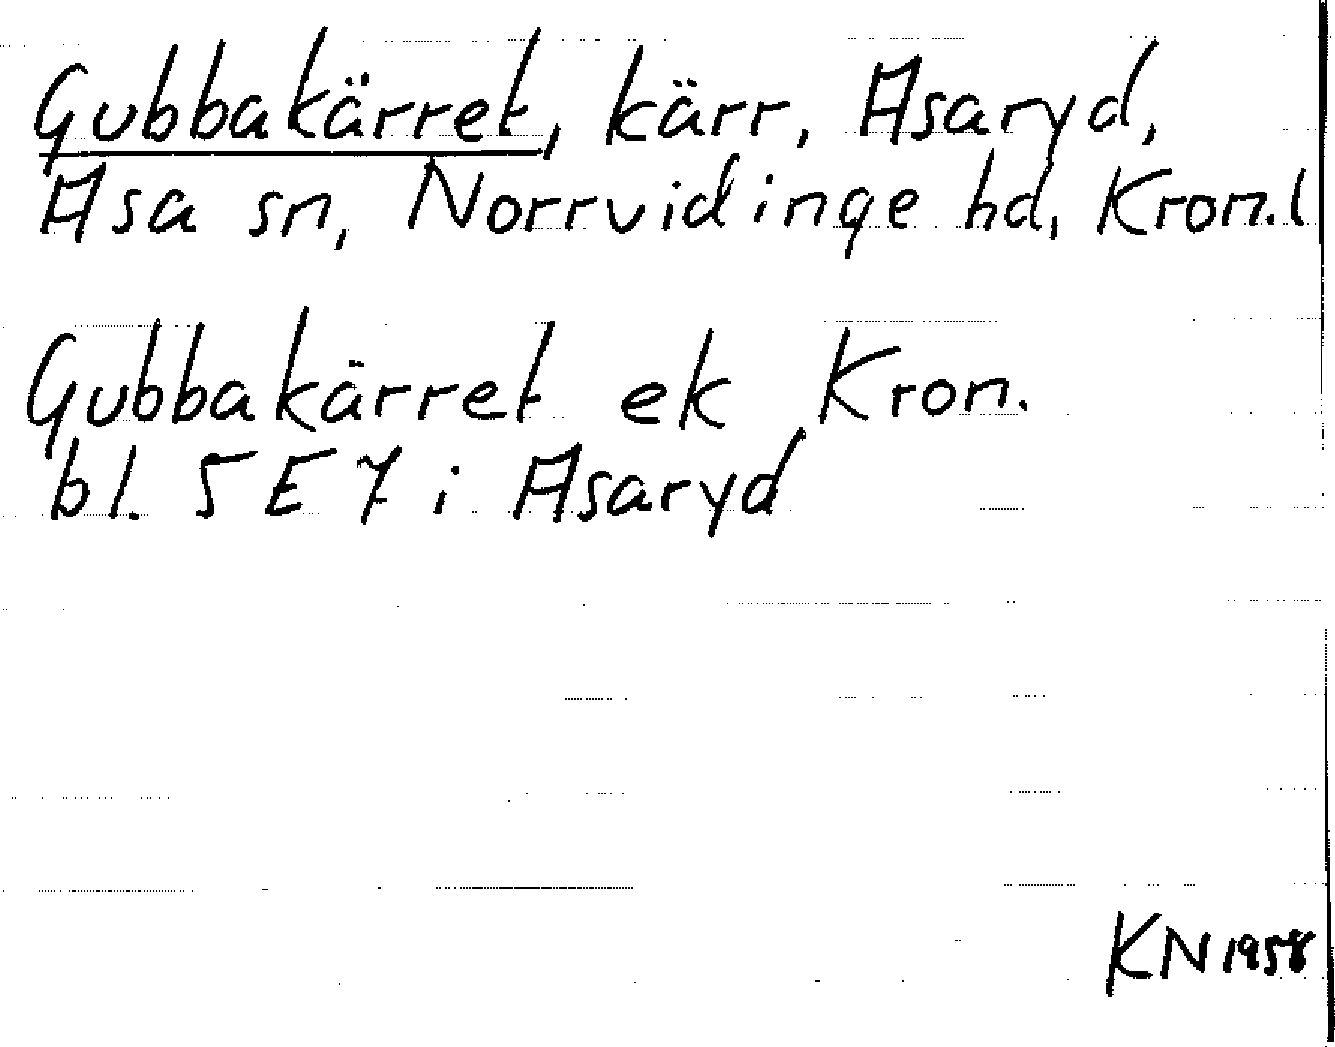 Gubbakärret, kärr, Asaryd,
Asa sn, Norrvidinge hd, Kron.l
Gubbakärret ek Kron.
bl. 5 E 7 i Asaryd
KN 1958